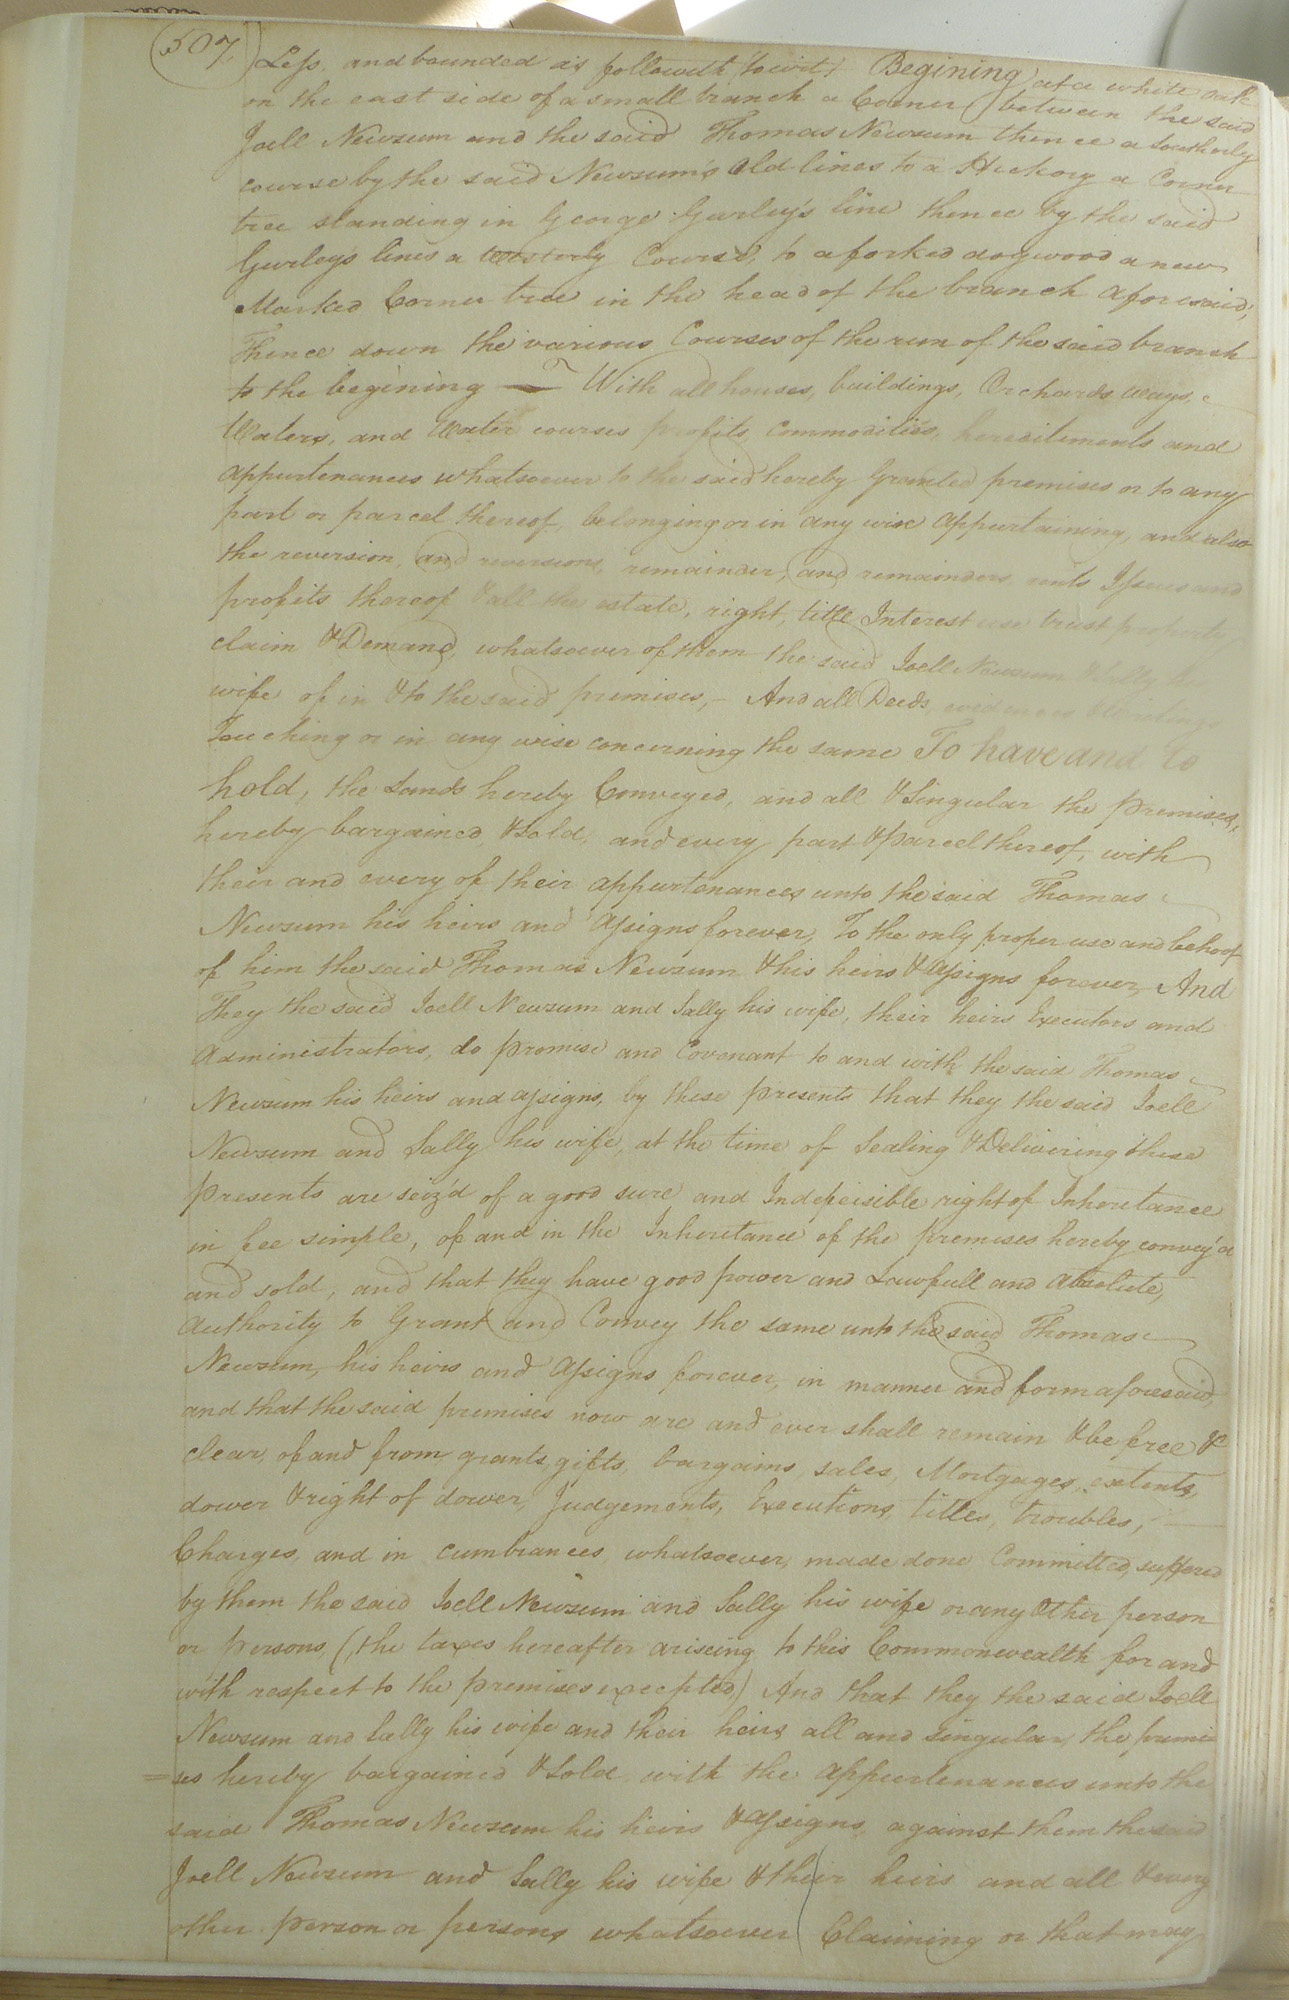 507
Less, and bounded as followith (towit) Begining at a white oak
on the east side of a small branch a Corner between the said
Joell Newsum and the said Thomas Newsum thence a Southerly
course by the said Newsum's old lines to a Hickory a Corner
tree standing in George Gurley's line thence by the said
Gurley's lines a Westerly Course, to a forked dogwood a new
Marked Corner tree in the head of the branch aforesaid;
Thence down the various Courses of the run of the said branch
to the begining — With all houses, buildings, Orchards ways,
Waters, and Water courses profits, commodities, hereditements and
appurtenances whatsoever to the said hereby Granted premises or to any
part or parcel thereof, belonging or in any wise appurtaining, and also
the reversion, and reversions, remainder, and remainders, rents Issues and
profits thereof & all the estate, right, title Interest use trust property
claim & Demand, whatsoever of them the said Joell Newsum & Sally his
wife of in & to the said premises, – And all Deeds evidences & writings
Touching or in any wise concerning the same To have and to
hold, the Lands hereby Conveyed, and all & Singular the premises,
hereby bargained & Sold, and every part & Parcel thereof, with
their and every of their appurtenances unto the said Thomas
Newsum his heirs and assigns forever, To the only proper use and behoof
of him the said Thomas Newsum & his heirs & assigns forever, And
They the said Joell Newsum and Sally his wife, their heirs Executors and
administrators, do promise and Covenant to and with the said Thomas
Newsum his heirs and assigns, by these presents that they the said Joell
Newsum and Sally his wife, at the time of Sealing & Delivering these
presents are seiz'd of a good sure and Indefeisible right of Inheritance
in fee simple, of and in the Inheritance of the premises hereby convey'd
and sold, and that they have good power and Lawfull and absolute,
authority to Grant and Convey the same unto the said Thomas
Newsum, his heirs and assigns forever, in manner and form aforesaid,
and that the said premises now are and ever shall remain & be free &
clear, of and from grants, gifts, bargains, sales, Mortgages, extents,
dower & right of dower, Judgements, Executions, titles, troubles,
Charges, and in cumbrances, whatsoever, made done Committed, suffered
by them the said Joell Newsum and Sally his wife or any other person
or persons, (the taxes hereafter ariseing to this Commonwealth for and
with respect to the premises excepted,) And that they the said Joell
Newsum and Sally his wife and their heirs, all and singular, the premi
=ses hereby bargained & Sold with the appurtenances unto the
said Thomas Newsum his heirs & assigns against them the said
Joell Newsum and Sally his wife & their heirs and all & every
other person or persons whatsoever Claiming or that may